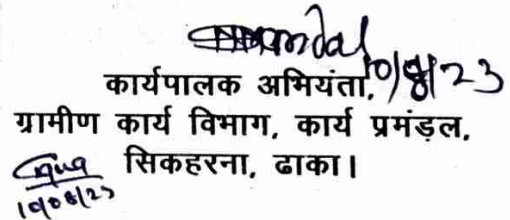 10/8/23
कार्यपालक अभियंता,
ग्रामीण कार्य विभाग, कार्य प्रमंड़ल,
सिकहरना, ढाका।
10/08/23